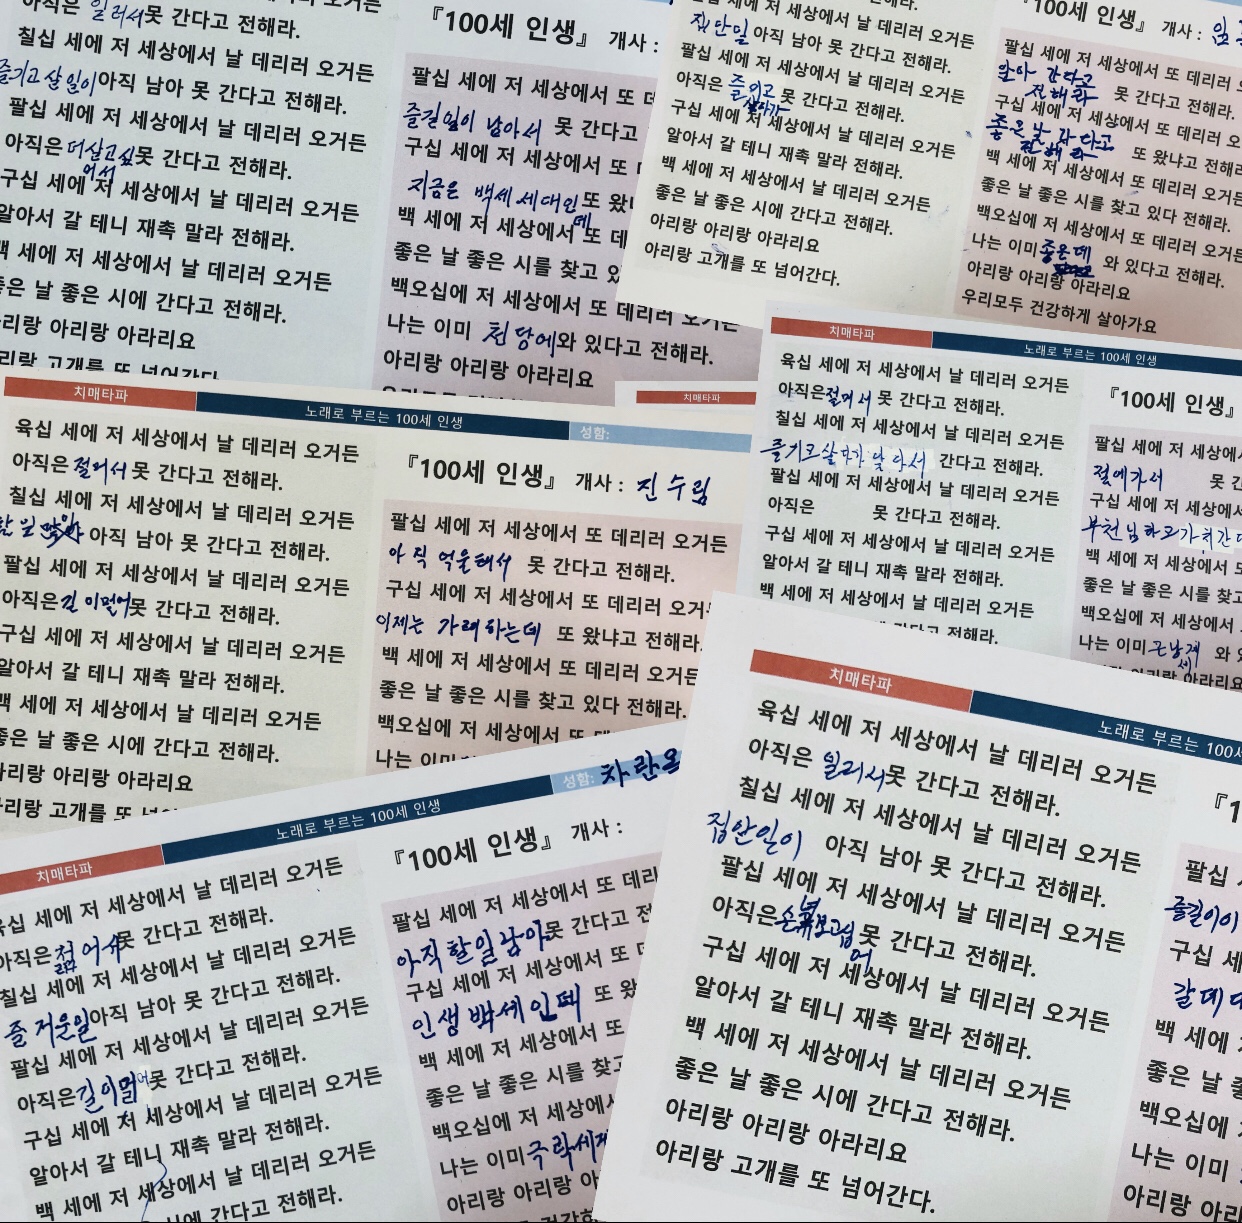 아직은 일러서 못 간다고 전해라.
칠십 세에 저 세상에서 날 데리러 오거든
즐기고 살 일이 아직 남아 못 간다고 전해라.
팔십 세에 저 세상에서 날 데리러 오거든
아직은 더 살고 싶어서 못 간다고 전해라.
구십 세에 저 세상에서 날 데리러 오거든
알아서 갈 테니 재촉 말라 전해라.
백 세에 저 세상에서 날 데리러 오거든
좋은 날 좋은 시에 간다고 전해라.
아리랑 아리랑 아라리요
아리랑 고개를 또 넘어간다.
『100세 인생』 개사 :
팔십 세에 저 세상에서 또 데
즐길일이 남아서 못 간다고
구십 세에 저 세상에서 또 데리러
지금은 백세 세대인데 또 왔
백 세에 저 세상에서 또 데
좋은 날 좋은 시를 찾고 있
백오십에 저 세상에서 또 데리러 오거든
나는 이미 천당에 와 있다고 전해라.
아리랑 아리랑 아라리요
집안일 아직 남아 못 간다고 전해라.
팔십 세에 저 세상에서 날 데리러 오거든
아직은 즐기고 살아가 못 간다고 전해라.
구십 세에 저 세상에서 날 데리러 오거든
알아서 갈 테니 재촉 말라 전해라.
백 세에 저 세상에서 날 데리러 오거든
좋은 날 좋은 시에 간다고 전해라.
아리랑 아리랑 아라리요
아리랑 고개를 또 넘어간다.
『100세 인생』 개사 : 임
팔십 세에 저 세상에서 또 데리러
알아 간다고 전해라 못 간다고 전해라.
구십 세에 저 세상에서 또 데리러
좋은날 간다고 전해라 또 왔냐고 전해라
백 세에 저 세상에서 또 데리러 오거든
좋은 날 좋은 시를 찾고 있다 전해라.
백오십에 저 세상에서 또 데리러 오거든
나는 이미 좋은데 와 있다고 전해라.
아리랑 아리랑 아라리요
우리모두 건강하게 살아가요
치매타파 노래로 부르는 100세 인생 성함:
육십 세에 저 세상에서 날 데리러 오거든
아직은 젊어서 못 간다고 전해라.
칠십 세에 저 세상에서 날 데리러 오거든
할 일 많아 아직 남아 못 간다고 전해라.
팔십 세에 저 세상에서 날 데리러 오거든
아직은 길이멀어 못 간다고 전해라.
구십 세에 저 세상에서 날 데리러 오거든
알아서 갈 테니 재촉 말라 전해라.
백 세에 저 세상에서 날 데리러 오거든
좋은 날 좋은 시에 간다고 전해라.
아리랑 아리랑 아라리요
아리랑 고개를 또
『100세 인생』 개사 : 진수림
팔십 세에 저 세상에서 또 데리러 오거든
아직 억울해서 못 간다고 전해라.
구십 세에 저 세상에서 또 데리러 오거
이제는 가려하는데 또 왔냐고 전해라
백 세에 저 세상에서 또 데리러 오거든
좋은 날 좋은 시를 찾고 있다 전해라.
백오십에 저 세상에서 또 데리러
나는 이미
치매타파
치매타파 노래로 부르는 100세 인생
육십 세에 저 세상에서 날 데리러 오거든
아직은 젊어서 못 간다고 전해라.
칠십 세에 저 세상에서 날 데리러 오거든
즐기고 살다가 간다고 전해라.
팔십 세에 저 세상에서 날 데리러 오거든
아직은 못 간다고 전해라.
구십 세에 저 세상에서 날 데리러 오거든
알아서 갈 테니 재촉 말라 전해라.
백 세에 저 세상에서 날 데리러 오거든
『100세 인생』
팔십 세에 저 세상에서
절에가서 못 간
구십 세에 저 세상에서
부처님하고 같이간다
백 세에 저 세상에서 또
좋은 날 좋은 시를 찾고
백오십에 저 세상에서
나는 이미 극낙제세 와
아리랑 아라리요
치매타파 노래로 부르는 100세 인생 성함: 차란옥
육십 세에 저 세상에서 날 데리러 오거든
아직은 젊어서 못 간다고 전해라.
칠십 세에 저 세상에서 날 데리러 오거든
즐거운일 아직 남아 못 간다고 전해라.
팔십 세에 저 세상에서 날 데리러 오거든
아직은 길이멀어 못 간다고 전해라.
구십 세에 저 세상에서 날 데리러 오거든
알아서 갈 테니 재촉 말라 전해라.
백 세에 저 세상에서 날 데리러 오거든
시에 간다고 전해라.
『100세 인생』 개사 :
팔십 세에 저 세상에서 또 데리
아직 할일 남아 못 간다고 전
구십 세에 저 세상에서 또 데
인생 백세인데 또 왔
백 세에 저 세상에서 또
좋은 날 좋은 시를 찾고
백오십에 저 세상에서
나는 이미 극락세계
아리랑 아리랑 아
치매타파 노래로 부르는 100세
육십 세에 저 세상에서 날 데리러 오거든
아직은 일러서 못 간다고 전해라.
칠십 세에 저 세상에서 날 데리러 오거든
집안일이 아직 남아 못 간다고 전해라.
팔십 세에 저 세상에서 날 데리러 오거든
아직은 손녀보고싶어 못 간다고 전해라.
구십 세에 저 세상에서 날 데리러 오거든
알아서 갈 테니 재촉 말라 전해라.
백 세에 저 세상에서 날 데리러 오거든
좋은 날 좋은 시에 간다고 전해라.
아리랑 아리랑 아라리요
아리랑 고개를 또 넘어간다.
『1
팔십
즐길이이
구십 세
갈데
백 세에
좋은 날
백오십에
나는 이미
아리랑